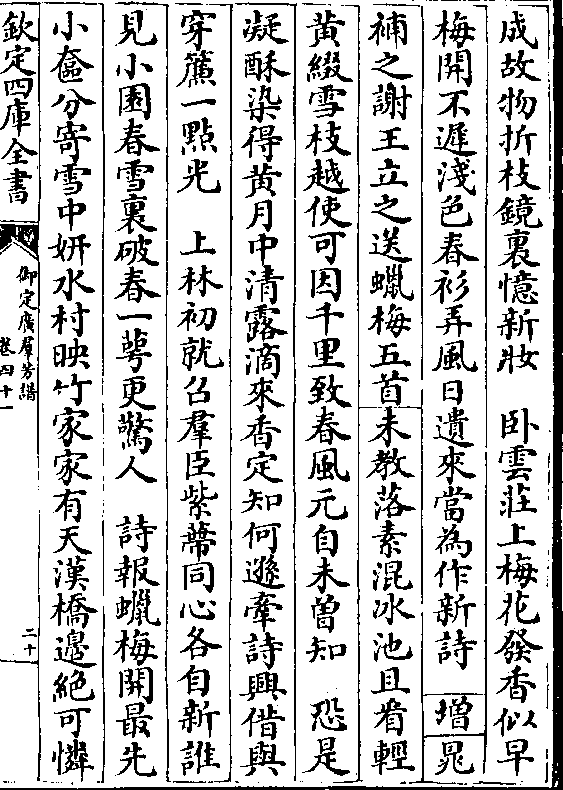 成故物折枝鏡裏憶新妝　卧雲莊上梅花發香似早
梅開不遲淺色春衫弄風日遺來當為作新詩　增晁
補之謝王立之送蠟梅五首未教落素混冰池且㸔輕
黄綴雪枝越使可因千里致春風元自未曽知　恐是
凝酥染得黄月中清露滴來香定知何遜牽詩興借與
穿簾一點光　上林初就召羣臣紫蔕同心各自新誰
見小園春雪裏破春一萼更驚人　詩報蠟梅開最先
小奩分寄雪中妍水村映竹家家有天漢橋邉絶可憐
欽定四庫全書
御定廣羣芳譜
卷四十一
二十